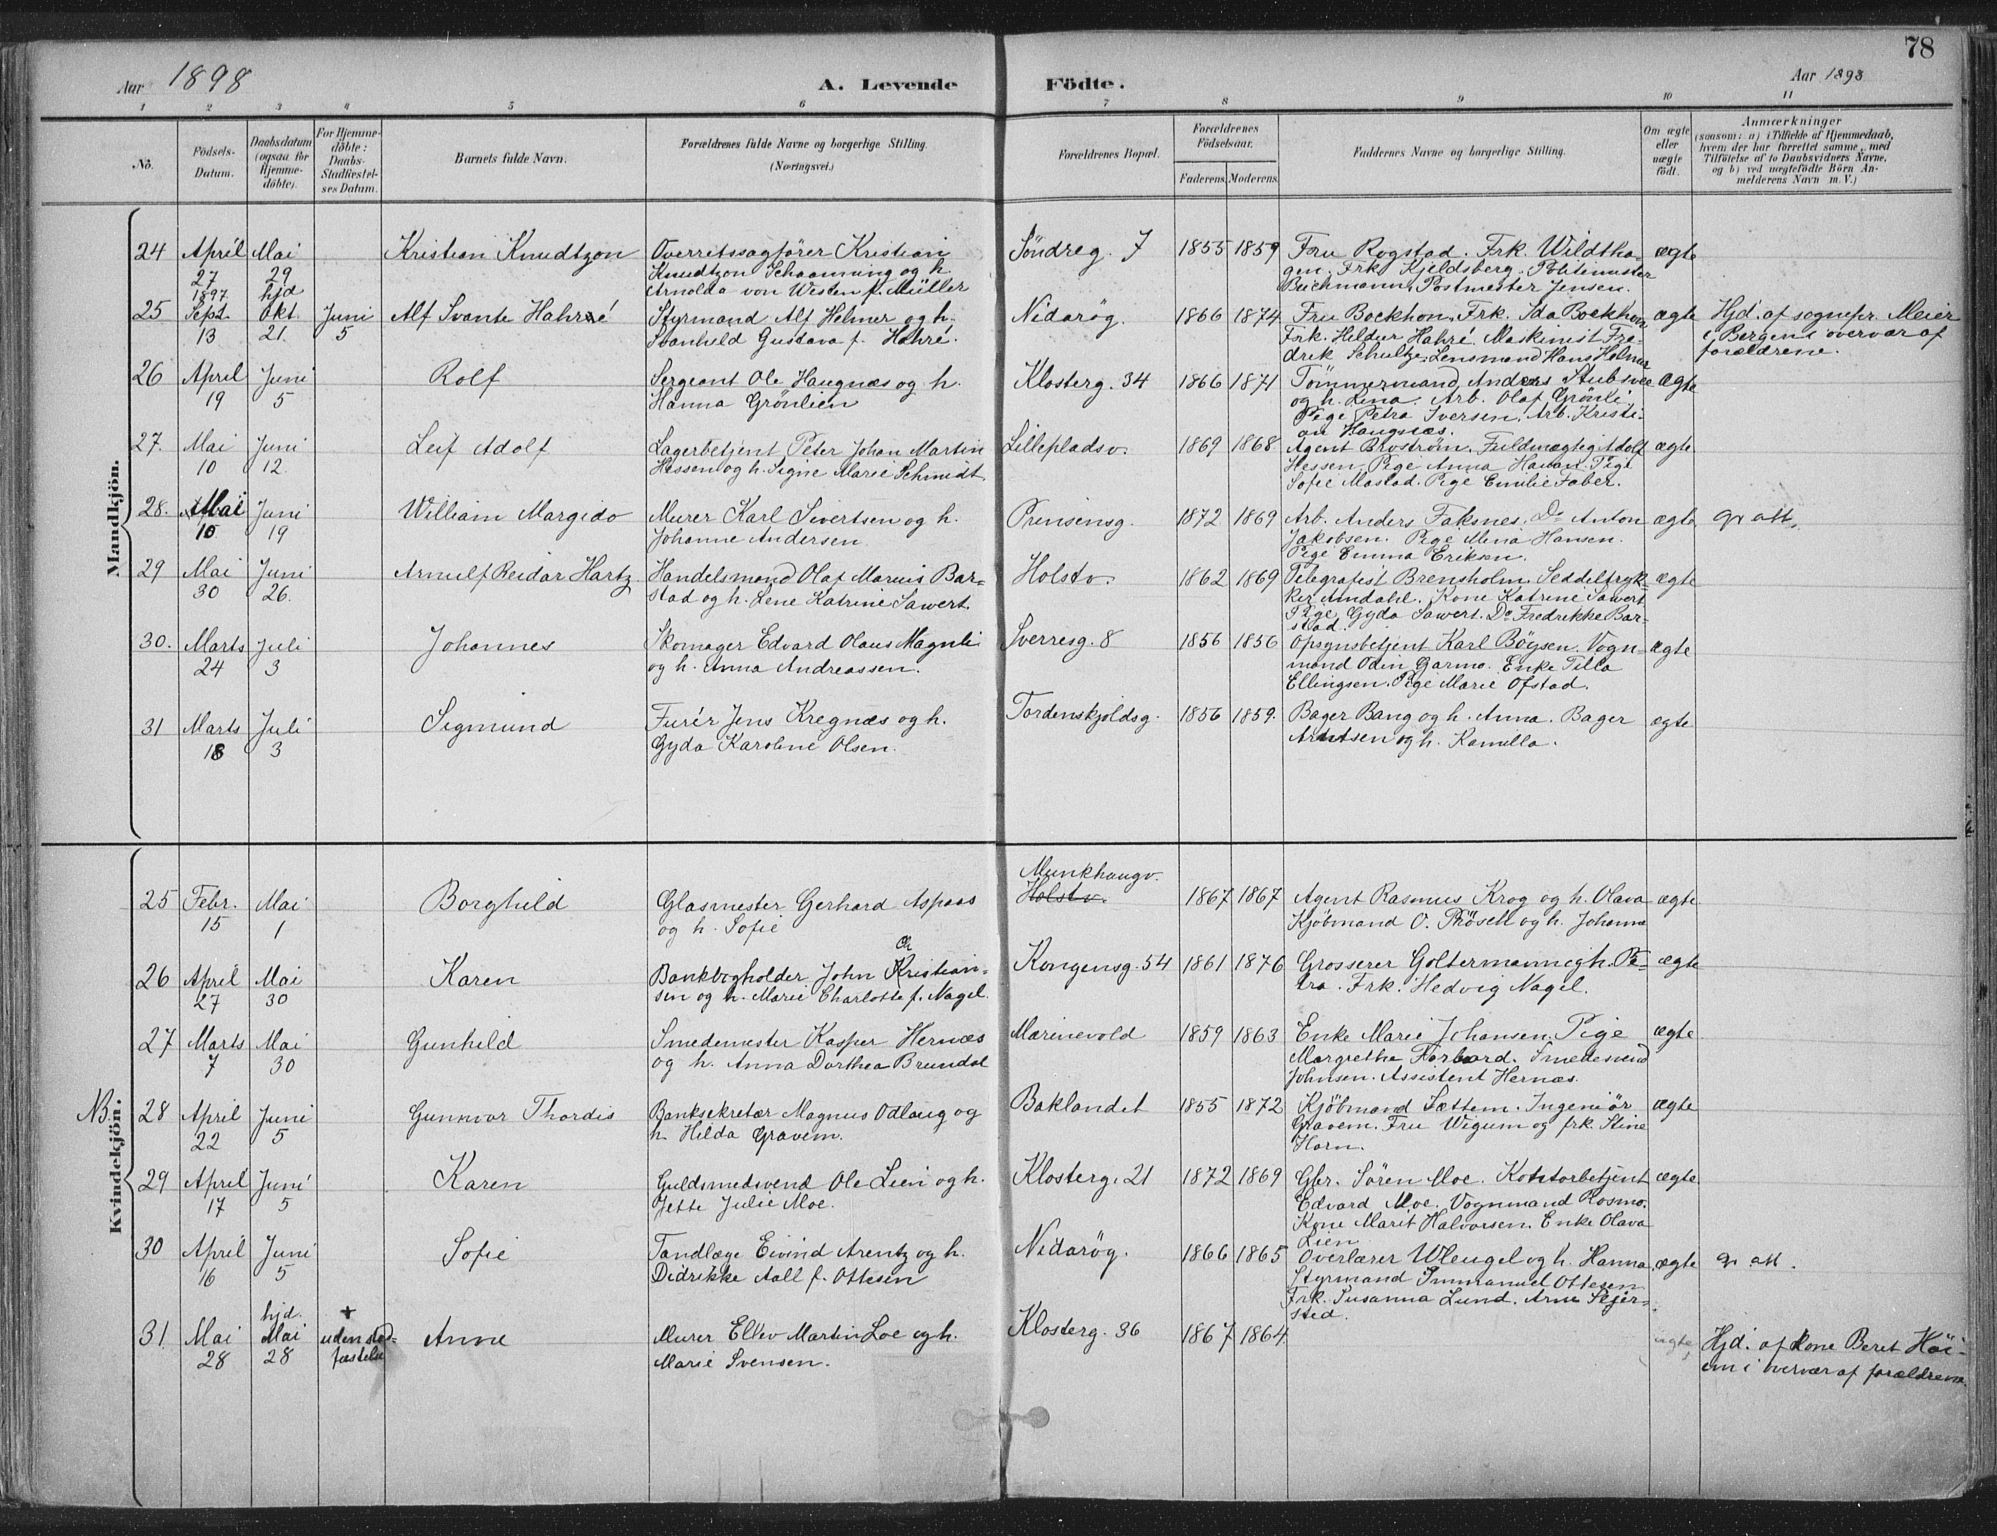 78
Aar 1898
A. Levende Födte.
Aar 1898
1 2 3 4 5 6 7 8 9 10 11
No.
Födsels-Datum.
Daabsdatum (ogsaa for Hjemmedöbte).
For Hjemmedöbte: Daabs-Stadfæstelses Datum.
Barnets fulde Navn.
Forældrenes fulde Navne og borgerlige Stilling. (Næringsvei.)
Forældrenes Bopæl.
Forældrenes Födselsaar.
Faderens. Moderens.
Faddernes Navne og borgerlige Stilling.
Om ægte eller uægte födt.
Anmærkninger
(saasom: a) i Tilfælde af Hjemmedaab,
hvem der har forrettet samme, med
Tilföielse af to Daabsvidners Navne,
og b) ved uægtefödte Börn An-
melderens Navn m. V.)
Mandkjön.
24 April 27 Mai 29 Kristian Knudtzon
Overretssagförer Kristian
Knudtzon Schaanning og h.
Arnolda von Westen f. Müller
Söndreg. 7 1855 1859
Fru Rogstad. Frk. Wildtha-
gen. Frk Kjeldsberg. Politimester
Buchmann, Postmester Jensen.
ægte
25 1897 Sept. 13 hjd Okt. 21. Juni 5 Alf Svante Hahré
Styrmand Alf Helmer og h.
Svanhild Gustava f. Hahré.
Nidarög. 1866 1874
Fru Bockhon, Frk. Ida Bockhon
Frk. Hildur Hahré. Maskinist Fre-
drik Schultze, Lensmand Hans Holmer
ægte
Hjd. af sognepr. Meier
i Bergen i overvær af
forældrene.
26 April 19 Juni 5 Rolf
Sergeant Ole Haugnæs og h.
Hanna Grönlien
Klosterg. 34 1866 1871
Tömmermand Anders Stubsvee
og h. Lina. Arb. Olaf Grönli
Pige Petra Iversen. Arb. Kristi-
an Haugnæs.
ægte
27. Mai 10 Juni 12. Leif Adolf
Lagerbetjent Peter Johan Martin
Hessen og h. Signe Marie Schmidt
Lillepladsv. 1869 1868
Agent Broström. Fuldmægtig Adolf
Hessen. Pige Anna Havan. Pige
Sofie Mostad. Pige Emilie Faber.
ægte
28. Mai 10 Juni 19 William Margido
Murer Karl Sivertsen og h.
Johanne Andersen
Prinsensg. 1872 1869
Arb. Anders Faksnes. Do Anton
Jakobsen. Pige Mina Hansen.
Pige Emma Eriksen.
ægte
gr att.
29 Mai 30 Juni 26. Arnulf Reidar Hartz
Handelsmand Olaf Marius Bar-
stad og h. Lene Katrine Sawert
Holstv. 1862 1869
Telegrafist Brensholm. Seddeltryk-
ker Amdahl. Kone Katrine Sawert
Pige Gyda Sawert. Do Fredrikke Bar-
stad.
ægte
30. Marts 24 Juli 3 Johannes
Skomager Edvard Olaus Magnli
og h. Anna Andreassen.
Sverresg. 8 1856 1856
Opsynsbetjent Karl Böysen. Vogn-
mand Odin Garmo. Enke Tilla
Ellingsen. Pige Marie Ofstad.
ægte
31 Marts 18 Juli 3 Sigmund
Furér Jens Kregnæs og h.
Gyda Karoline Olsen.
Tordenskjoldsg. 1856 1859.
Bager Bang og h. Anna. Bager
Arntsen og h. Kamilla.
ægte
Kvindekjön.
25 Febr. 15 Mai 1 Borghild
Glasmester Gerhard Aspaas
og h. Sofie
Munkhaugv.
Holstv.
1867 1867
Agent Rasmus Krog og h. Olava
Kjöbmand O. Prösch og h. Johanna
ægte
26 April 27 Mai 30 Karen
Ch
Bankbogholder John Kristian-
sen og h. Marie Charlotte f. Nagel.
Kongensg. 54 1861 1876
Grosserer Goltermann og h. Pe-
tra. Frk. Hedvig Nagel.
ægte
27 Marts 7 Mai 30 Gunhild
Smedemester Kasper Hernæs
og h. Anna Dorthea Brundal
Marinevold 1859 1863
Enke Marie Johansen. Pige
Margrethe Forbord. Smedesvend
Johnsen. Assistent Hernæs.
ægte
NB.
28 April 22 Juni 5 Gunnvor Thordis
Banksekretær Magnus Odlaug og
h. Hilda Gravem.
Baklandet 1855 1872
Kjöbmand Sættem. Ingeniör
Gravem. Fru Wigum og frk. Stine
Horn.
ægte
29 April 17 Juni 5 Karen
Guldsmedsvend Ole Lien og h.
Jette Julie Moe.
Klosterg. 21 1872 1869
Gbr. Sören Moe. Kontorbetjent
Edvard Moe. Vognmand Rosmo.
Kone Marit Halvorsen. Enke Olava
Lien
ægte
30 April 16 Juni 5 Sofie
Tandlæge Eivind Arentz og h.
Didrikke Aall f. Ottesen
Nidarög. 1866 1865
Overlærer Wleugel og h. Hanna
Styrmand Immanuel Ottesen
Frk. Susanna Lund. Arne Sejer-
sted.
ægte
gr att.
31. Mai 28 hjd. Mai 28 + uden stad-fæstelse Anne
Murer Ellev Martin Loe og h.
Marie Svensen.
Klosterg. 36 1867 1864
ægte
Hjd. af kone Beret Höi-
em i overvær af forældrene.